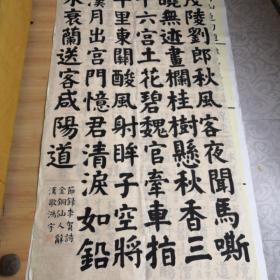 茂陵劉郎秋風客夜聞馬嘶
曉無迹畫欄桂樹懸秋香三
十六宮土花碧魏官牽車指
千里東關酸風射眸子空將
漢月出宮門憶君清淚如鉛
水衰蘭送客咸陽道
節錄李賀詩
金銅仙人辭
漢歌鴻宇